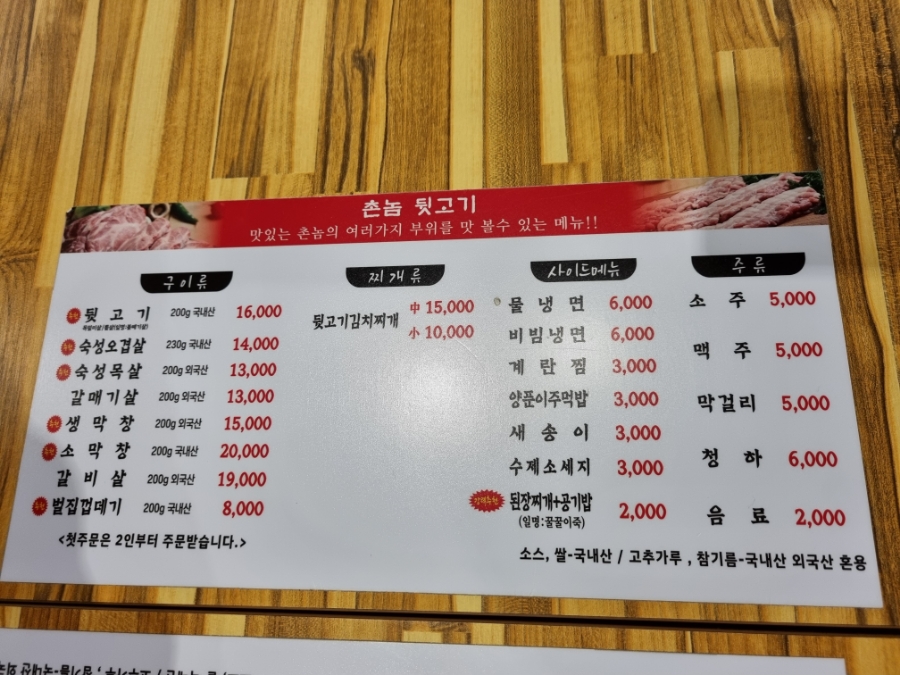 촌놈 뒷고기
맛있는 촌놈의 여러가지 부위를 맛 볼수 있는 메뉴!!
구이류
추천 뒷고기 200g 국내산 16,000
추천 숙성오겹살 230g 국내산 14,000
추천 숙성목살 200g 외국산 13,000
갈매기살 200g 외국산 13,000
추천 생막창 200g 국내산 15,000
추천 소막창 200g 국내산 20,000
갈비살 200g 외국산 19,000
추천 벌집껍데기 200g 국내산 8,000
<첫주문은 2인부터 주문받습니다.>
찌개류
뒷고기김치찌개 中 15,000
小 10,000
사이드메뉴
물냉면 6,000
비빔냉면 6,000
계란찜 3,000
양푼이주먹밥 3,000
새송이 3,000
수제소세지 3,000
된장찌개+공기밥 2,000
(일명:꿀꿀이죽)
주류
소주 5,000
맥주 5,000
막걸리 5,000
청하 6,000
음료 2,000
소스, 쌀-국내산 / 고추가루 , 참기름-국내산 외국산 혼용